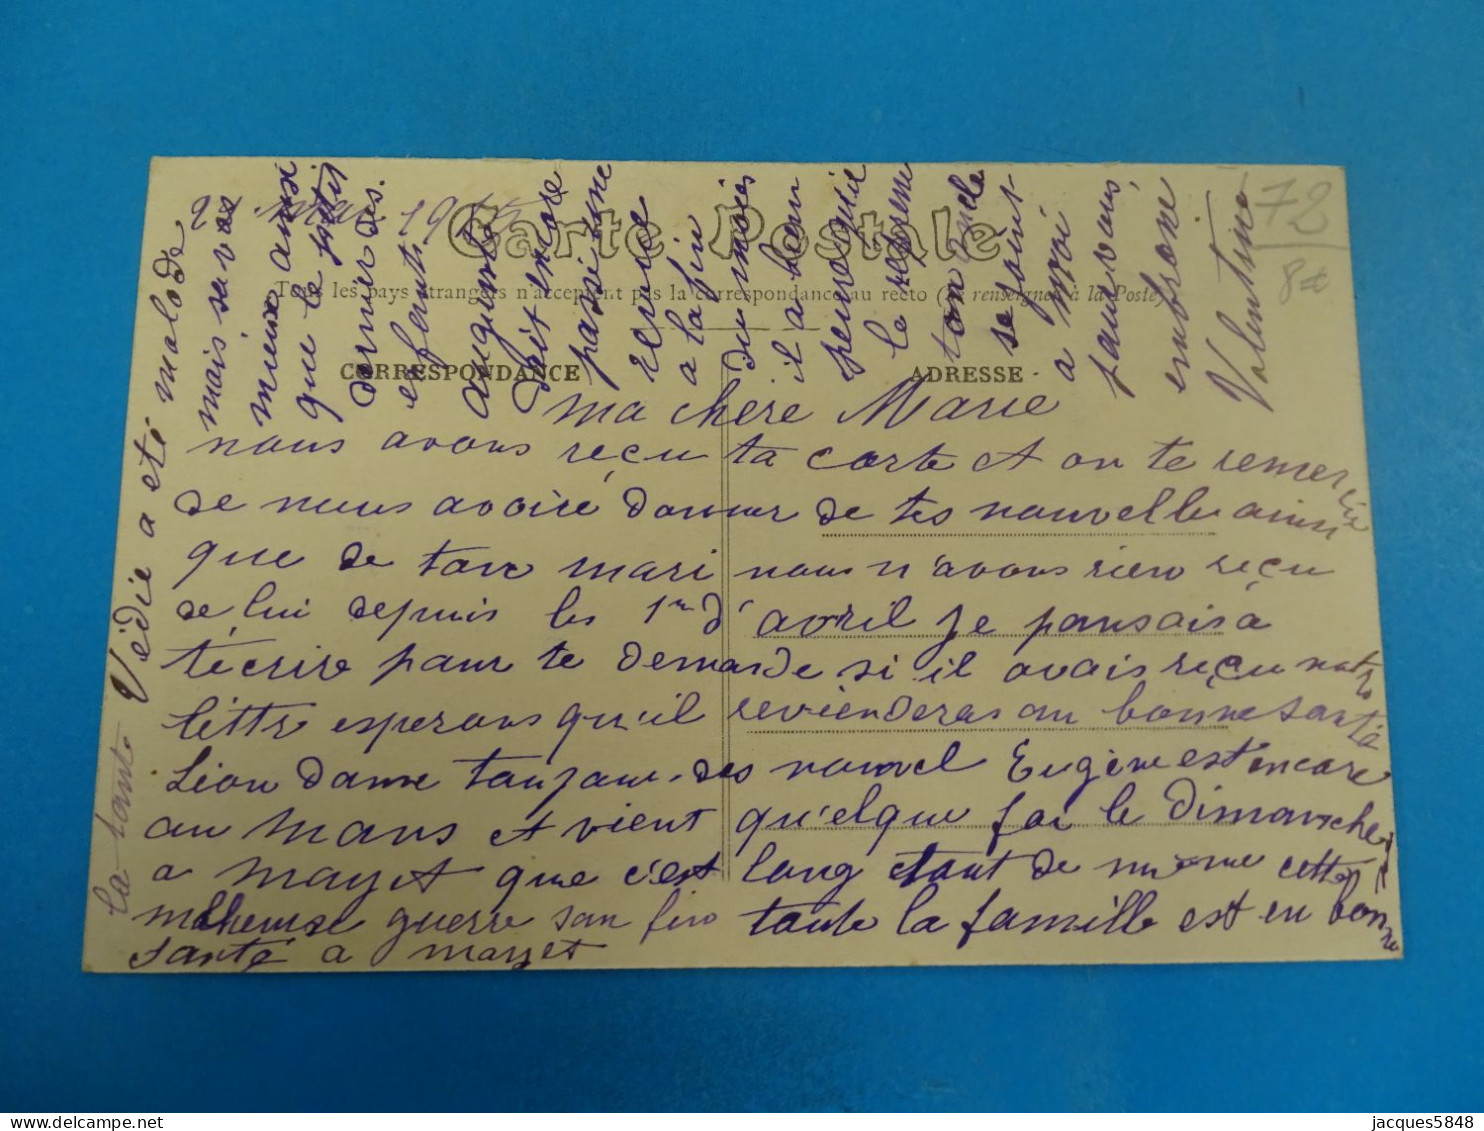 mai 19
Carte Postale
Tous les pays étrangers n'acceptent pas la correspondance au recto (se renseigner à la Poste)
CORRESPONDANCE
ADRESSE
72
8
ma chere Marie
nous avons reçu ta carte et on te remercie
de nous avoire donner de tes nouvelle ainsi
que de ton mari nous n'avons rien reçu
de lui depuis les 1er d'avril je pensais à
t'écrire pour te demande si il avais reçu notre
lettre esperons qu'il reviendras en bonne santé
Léon donne toujour des nouvel Eugène est encore
au mans et vient quelque foi le Dimanche
a mayet que c'est long tout de même cette
malheureuse guerre san fin toute la famille est en bonne
santé a mayet
la tante Védie a été malade
mais sa vas
mieux ainsi
que le petit
dernier des
enfents
auguste
doit encore
passé une
revue
a la fin
du mois
il a bien
peur quil
le reprenne
ton oncle
se joint
a moi
pour vous
embrasser
Valentine
jacques5848